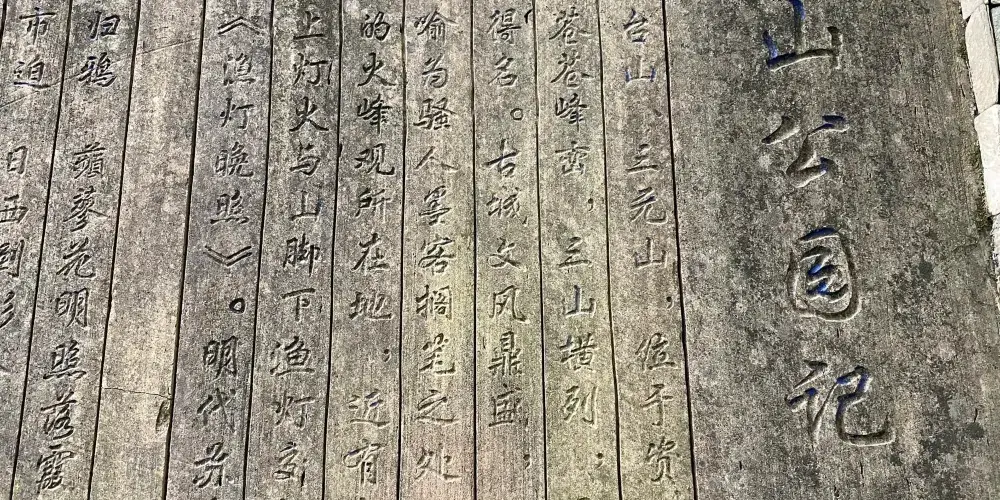 山公园记
台山、三元山，位于资
苍苍峰峦，三山横列；
得名。古城文风鼎盛；
喻为骚人写客搁笔之处
的火峰观所在地；近有
上灯火与山脚下渔灯交
《渔灯晚照》。明代苏
归鸦 蘋蓼花明照落霞
市迫 日西倒影